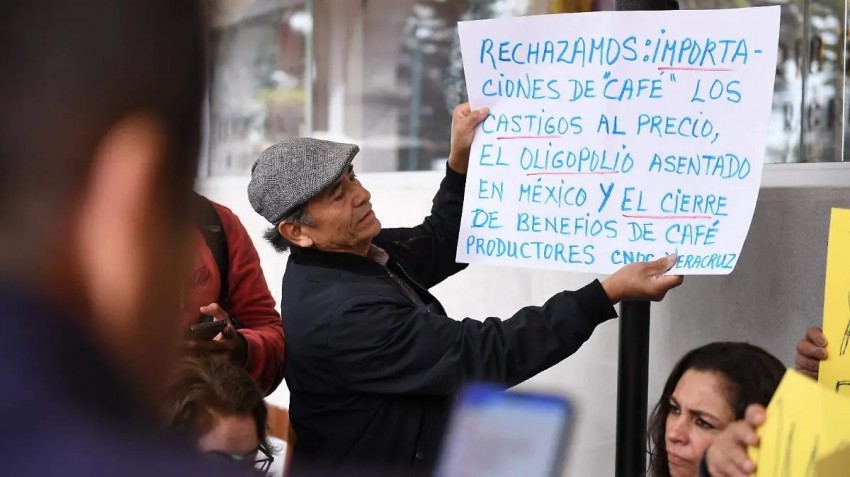 RECHAZAMOS: IMPORTA-
CIONES DE "CAFÉ" LOS
CASTIGOS AL PRECIO,
EL OLIGOPOLIO ASENTADO
EN MÉXICO Y EL CIERRE
DE BENEFIOS DE CAFÉ
PRODUCTORES CNOC VERACRUZ